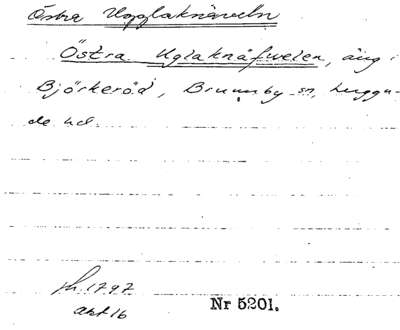 Östra Ugglaknäveln
Östra Uglaknåfwelen, äng i
Björkeröd, Brunnby sn, Luggu-
de hd.
Sk. 1797
akt 16
Nr 5201.